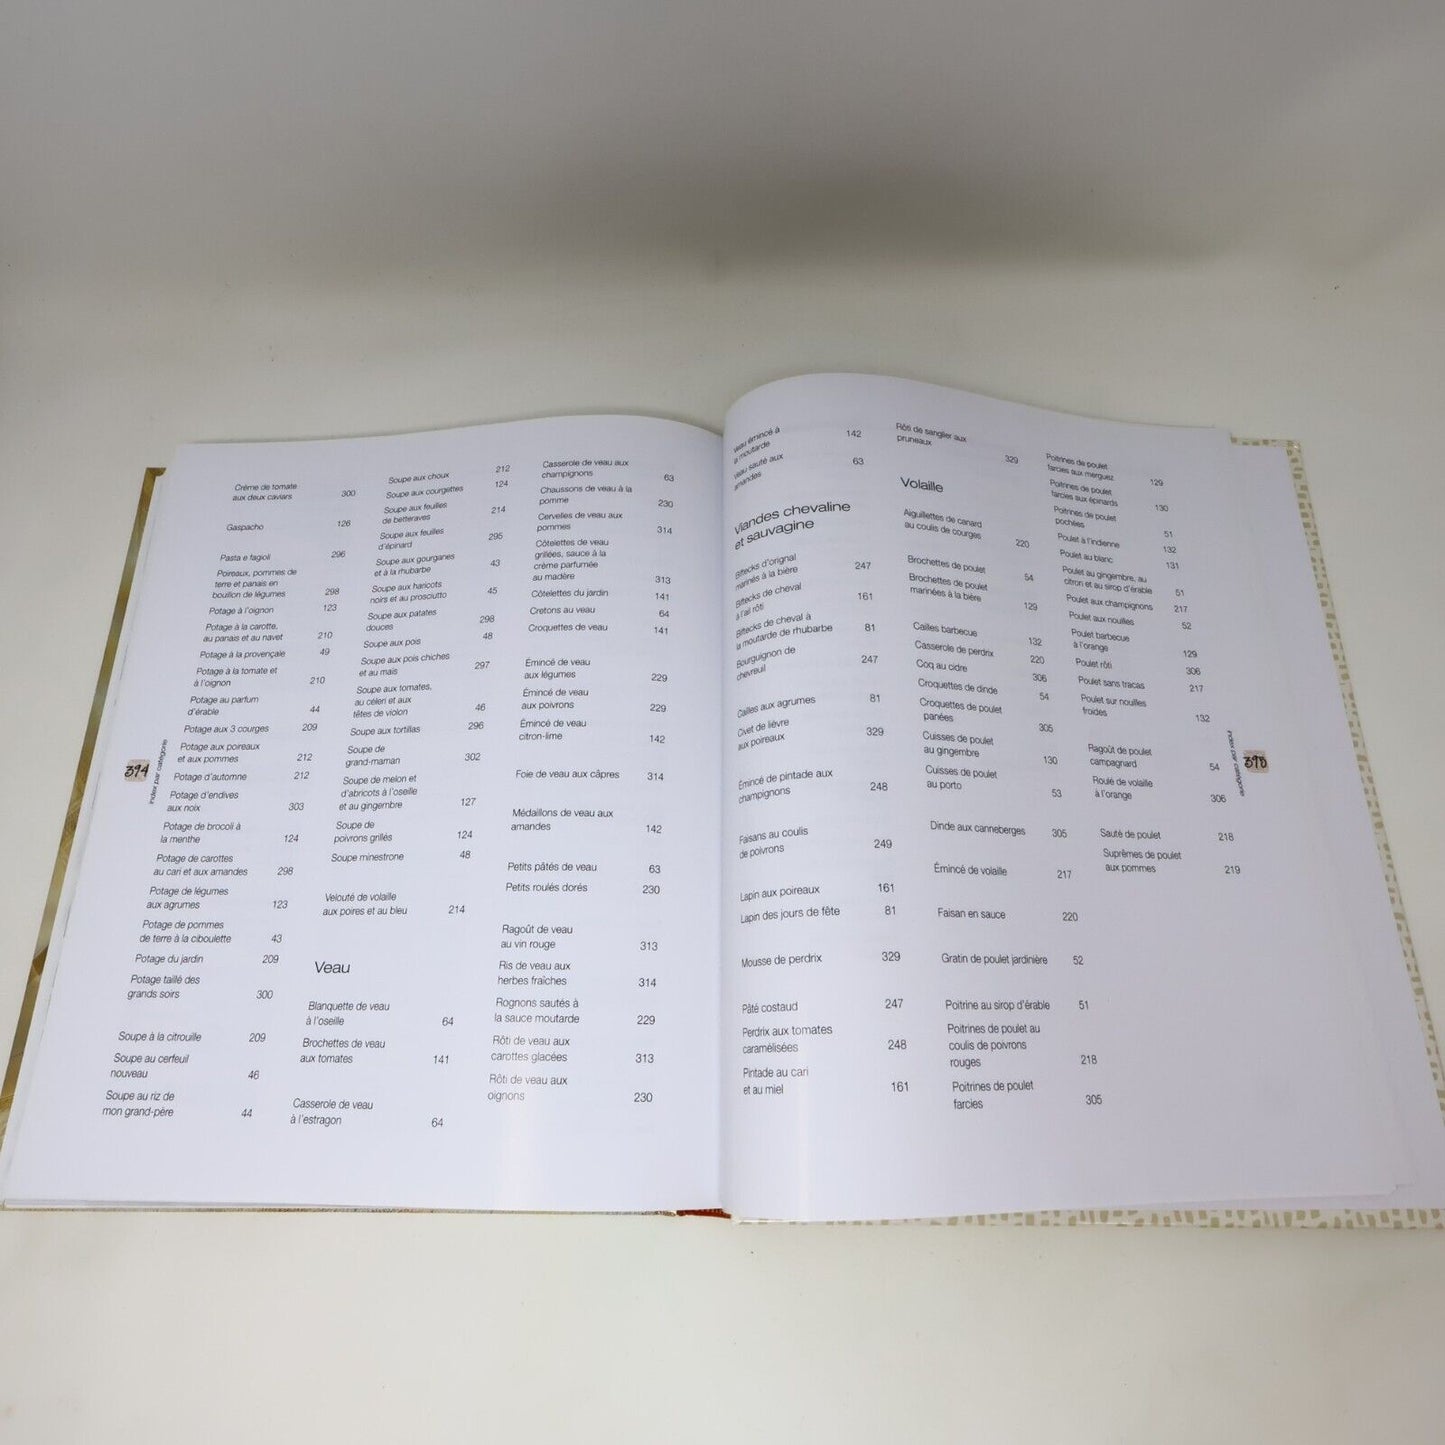 Crème de tomate
aux deux caviars 300
Gaspacho 126
Pasta e fagioli 296
Poireaux, pommes de
terre et panais en
bouillon de légumes 298
Potage à l'oignon 123
Potage à la carotte,
au panais et au navet 210
Potage à la provençale 49
Potage à la tomate et
à l'oignon 210
Potage au parfum
d'érable 44
Potage aux 3 courges 209
Potage aux poireaux
et aux pommes 212
Potage d'automne 212
Potage d'endives
aux noix 303
Potage de brocoli à
la menthe 124
Potage de carottes
au cari et aux amandes 298
Potage de légumes
aux agrumes 123
Potage de pommes
de terre à la ciboulette 43
Potage du jardin 209
Potage taillé des
grands soirs 300
Soupe à la citrouille 209
Soupe au cerfeuil
nouveau 46
Soupe au riz de
mon grand-père 44
394
index par catégorie
Soupe aux choux 212
Soupe aux courgettes 124
Soupe aux feuilles
de betteraves 214
Soupe aux feuilles
d'épinard 295
Soupe aux gourganes
et à la rhubarbe 43
Soupe aux haricots
noirs et au prosciutto 45
Soupe aux patates
douces 298
Soupe aux pois 48
Soupe aux pois chiches
et au maïs 297
Soupe aux tomates,
au céleri et aux
têtes de violon 46
Soupe aux tortillas 296
Soupe de
grand-maman 302
Soupe de melon et
d'abricots à l'oseille
et au gingembre 127
Soupe de
poivrons grillés 124
Soupe minestrone 48
Velouté de volaille
aux poires et au bleu 214
Veau
Blanquette de veau
à l'oseille 64
Brochettes de veau
aux tomates 141
Casserole de veau
à l'estragon 64
Casserole de veau aux
champignons 63
Chaussons de veau à la
pomme 230
Cervelles de veau aux
pommes 314
Côtelettes de veau
grillées, sauce à la
crème parfumée
au madère 313
Côtelettes du jardin 141
Cretons au veau 64
Croquettes de veau 141
Émincé de veau
aux légumes 229
Émincé de veau
aux poivrons 229
Émincé de veau
citron-lime 142
Foie de veau aux câpres 314
Médaillons de veau aux
amandes 142
Petits pâtés de veau 63
Petits roulés dorés 230
Ragoût de veau
au vin rouge 313
Ris de veau aux
herbes fraîches 314
Rognons sautés à
la sauce moutarde 229
Rôti de veau aux
carottes glacées 313
Rôti de veau aux
oignons 230
Veau émincé à
la moutarde 142
Veau sauté aux
amandes 63
Viandes chevaline
et sauvagine
Biftecks d'orignal
marinés à la bière 247
Biftecks de cheval
à l'ail rôti 161
Biftecks de cheval à
la moutarde de rhubarbe 81
Bourguignon de
chevreuil 247
Cailles aux agrumes 81
Civet de lièvre
aux poireaux 329
Émincé de pintade aux
champignons 248
Faisans au coulis
de poivrons 249
Lapin aux poireaux 161
Lapin des jours de fête 81
Mousse de perdrix 329
Pâté costaud 247
Perdrix aux tomates
caramélisées 248
Pintade au cari
et au miel 161
Rôti de sanglier aux
pruneaux 329
Volaille
Aiguillettes de canard
au coulis de courges 220
Brochettes de poulet 54
Brochettes de poulet
marinées à la bière 129
Cailles barbecue 132
Casserole de perdrix 220
Coq au cidre 306
Croquettes de dinde 54
Croquettes de poulet
panées 305
Cuisses de poulet
au gingembre 130
Cuisses de poulet
au porto 53
Dinde aux canneberges 305
Émincé de volaille 217
Faisan en sauce 220
Gratin de poulet jardinière 52
Poitrine au sirop d'érable 51
Poitrines de poulet au
coulis de poivrons
rouges 218
Poitrines de poulet
farcies 305
Poitrines de poulet
farcies aux merguez 129
Poitrines de poulet
farcies aux épinards 130
Poitrines de poulet
pochées 51
Poulet à l'indienne 132
Poulet au blanc 131
Poulet au gingembre, au
citron et au sirop d'érable 51
Poulet aux champignons 217
Poulet aux nouilles 52
Poulet barbecue
à l'orange 129
Poulet rôti 306
Poulet sans tracas 217
Poulet sur nouilles
froides 132
Ragoût de poulet
campagnard 54
Roulé de volaille
à l'orange 306
Sauté de poulet 218
Suprêmes de poulet
aux pommes 219
index par catégorie